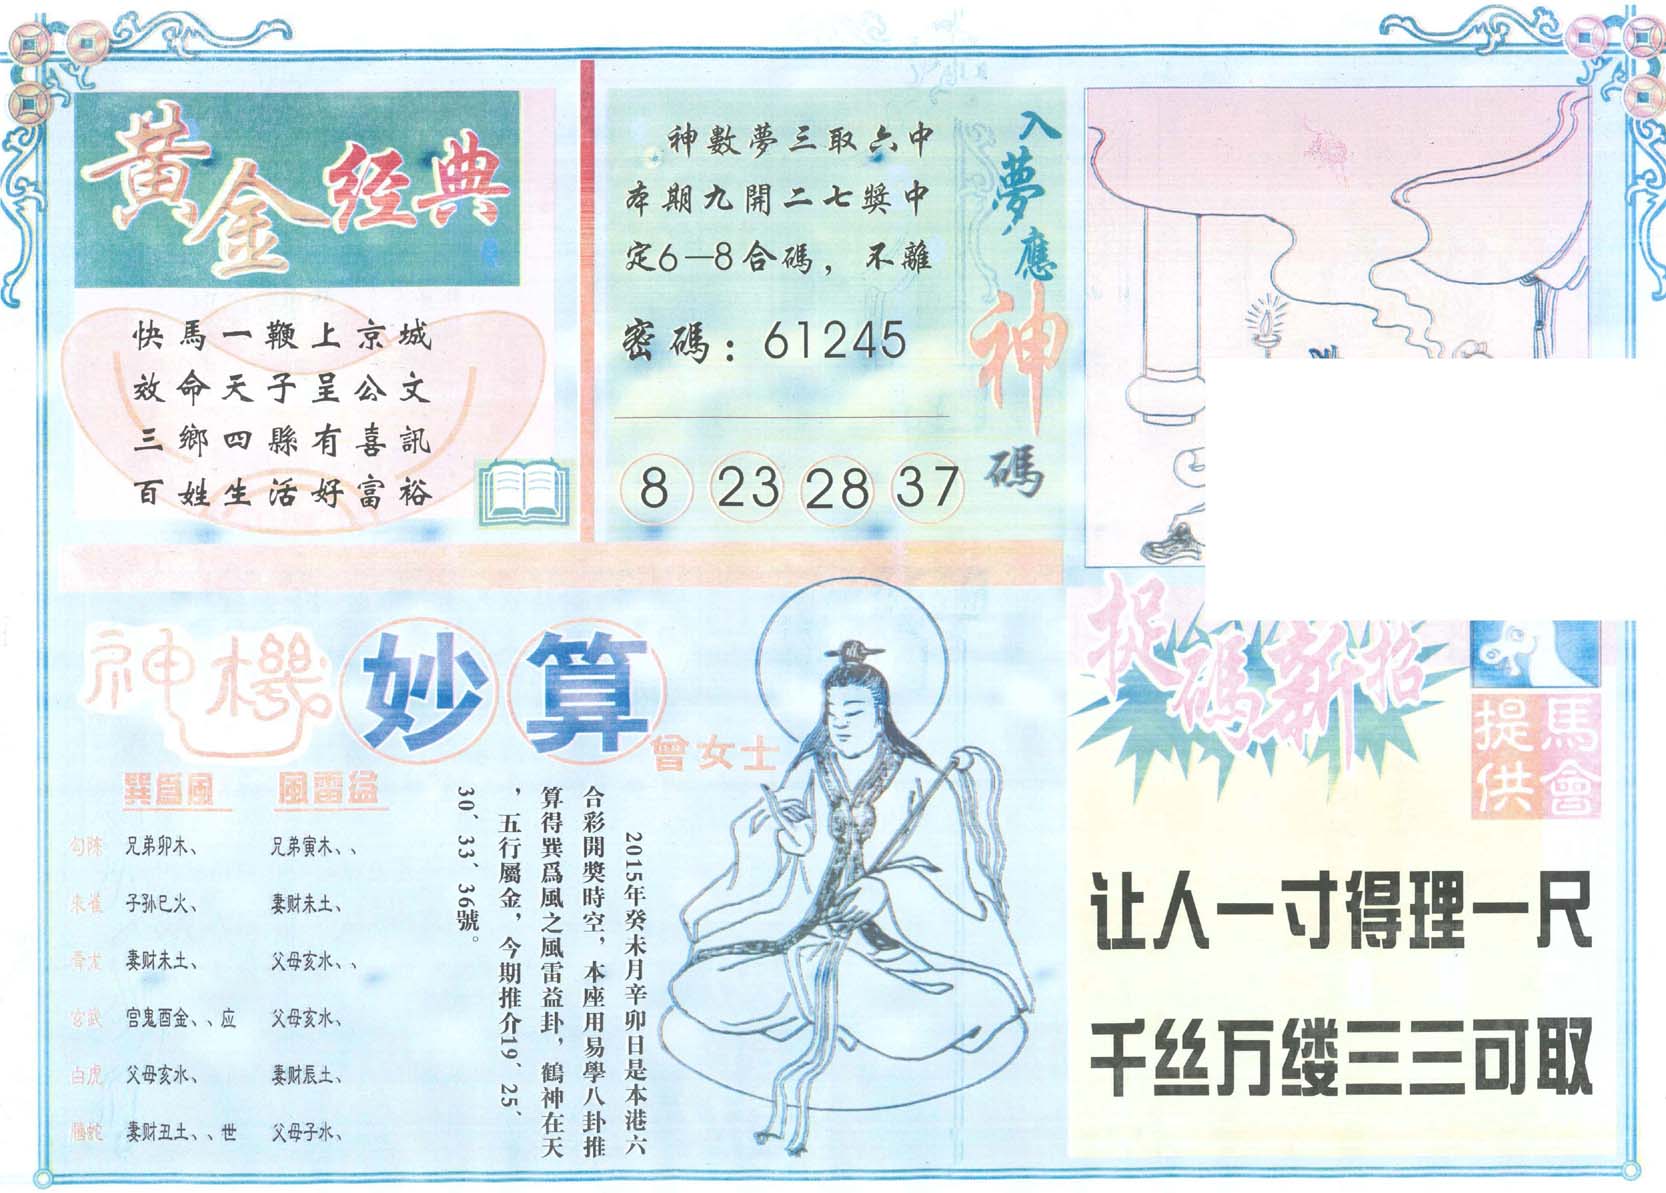 黃金经典
快馬一鞭上京城
效命天子呈公文
三鄉四縣有喜訊
百姓生活好富裕
入夢應神碼
神數夢三取六中
本期九開二七獎中
定6—8合碼，不離
密碼：61245
8 23 28 37
神機妙算
曾女士
巽爲風 風雷益
勾陈 兄弟卯木、 兄弟寅木、、
朱雀 子孙巳火、 妻财未土、
青龙 妻财未土、 父母亥水、、
玄武 官鬼酉金、、应 父母亥水、
白虎 父母亥水、 妻财辰土、
腾蛇 妻财丑土、、世 父母子水、
2015年癸未月辛卯日是本港六
合彩開獎時空，本座用易學八卦推
算得巽爲風之風雷益卦，鶴神在天
，五行屬金，今期推介19、25、
30、33、36號。
捉碼新招
馬會
提供
让人一寸得理一尺
千丝万缕三三可取